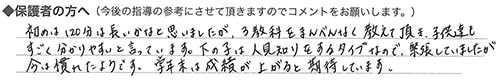 ◆保護者の方へ（今後の指導の参考にさせて頂きますのでコメントをお願いします。）
初めは120分は長いかなと思いましたが、3教科をまんべんなく教えて頂き、子供達も
すごく分かりやすいと言っています。下の子は人見知りをするタイプなので、緊張していましたが
今は慣れたようです。学年末は成績が上がると期待しています。